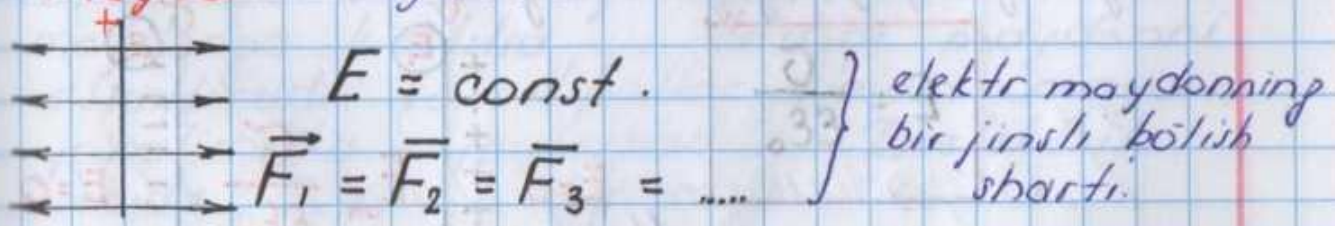 +
E = const.
F₁ = F₂ = F₃ = .....
elektr maydonning
bir jinsli bòlish
sharti.